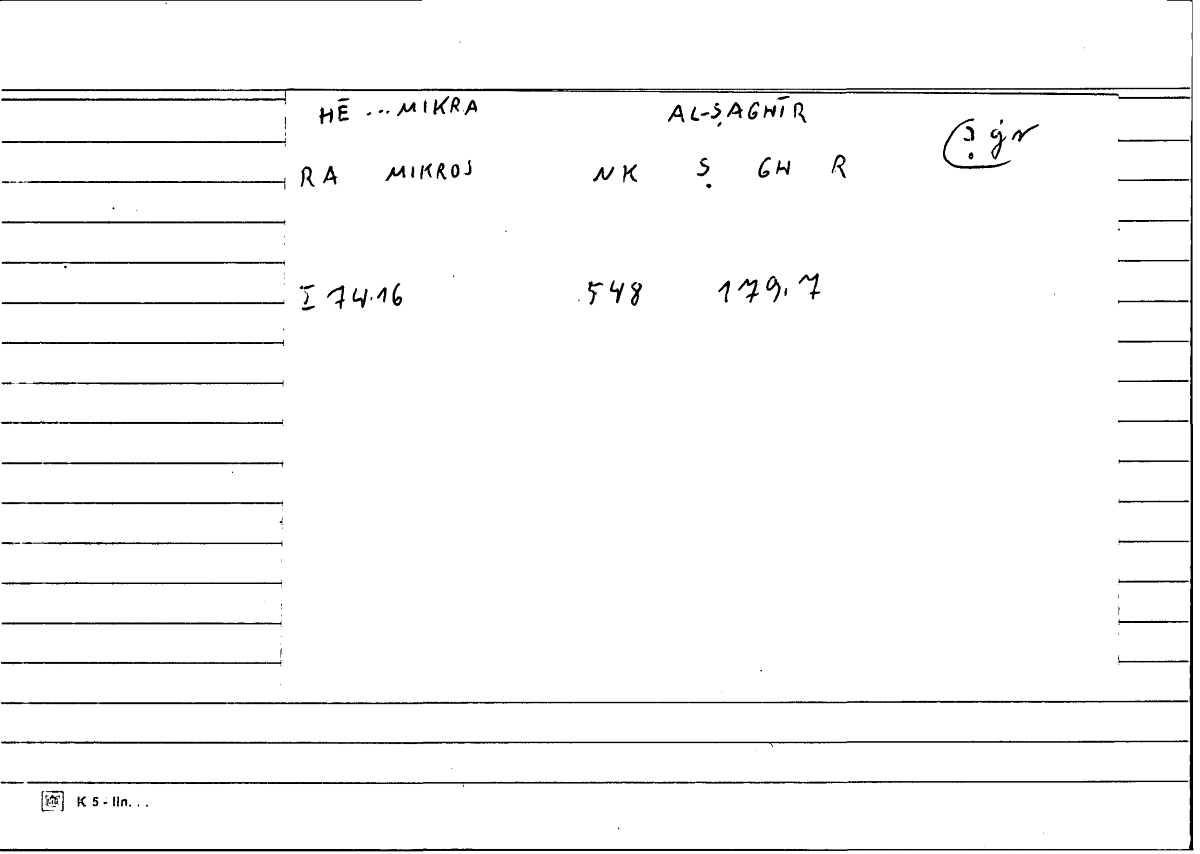 HĒ ...MIKRA AL-ṢAGHĪR
ṣ ġr
RA MIKROS NK Ṣ GH R
I 74.16 548 179.7
K 5 - lin. . .